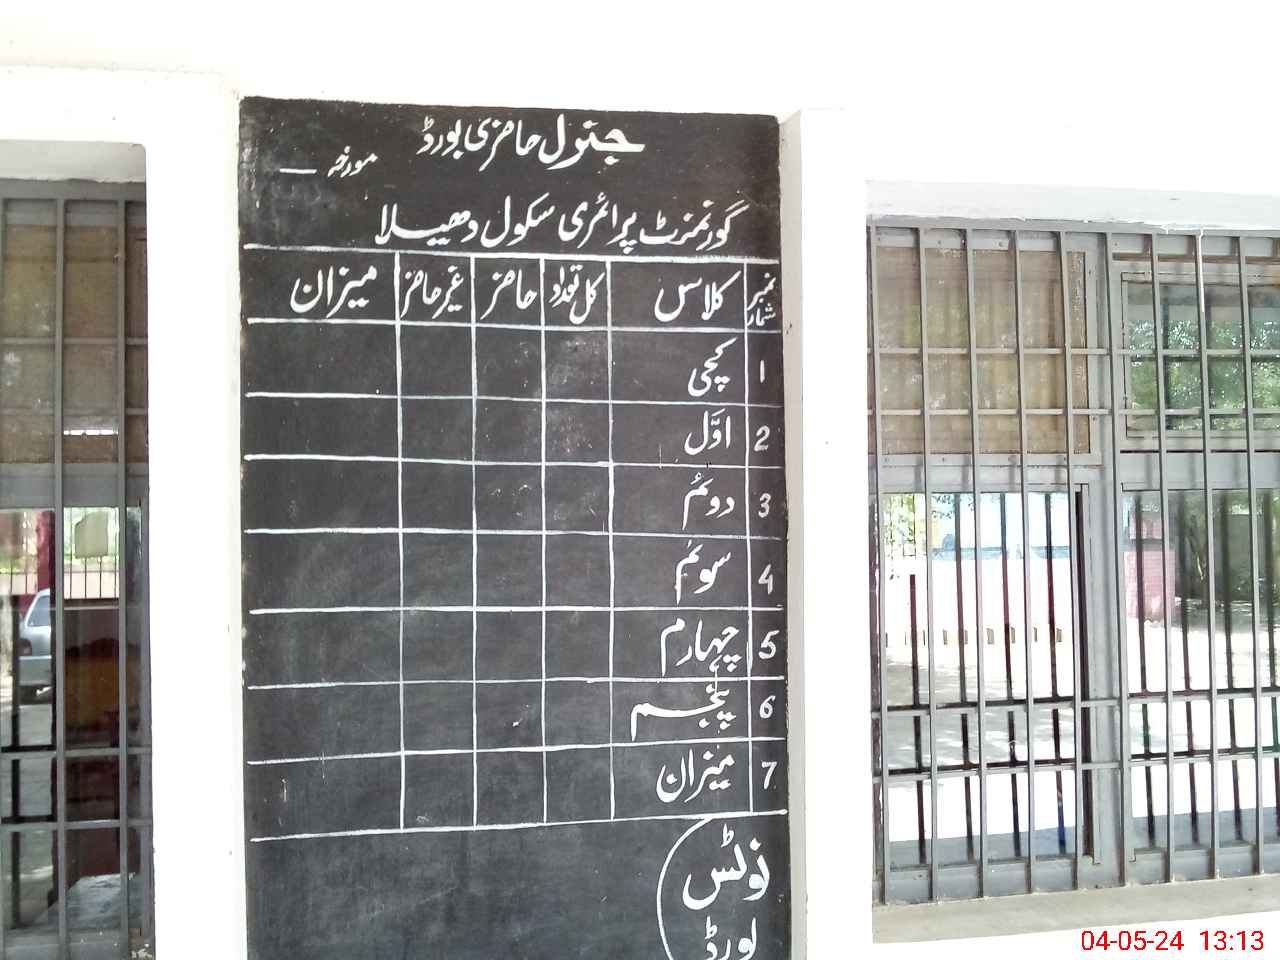 جنرل حاضری بورڈ
مورخہ __
گورنمنٹ پرائمری سکول دھیلا
نمبر شمار کلاس کل تعداد حاضر غیر حاضر میزان
1 کچی
2 اوّل
3 دوئم
4 سوئم
5 چہارم
6 پنجم
7 میزان
نوٹس
بورڈ
04-05-24 13:13